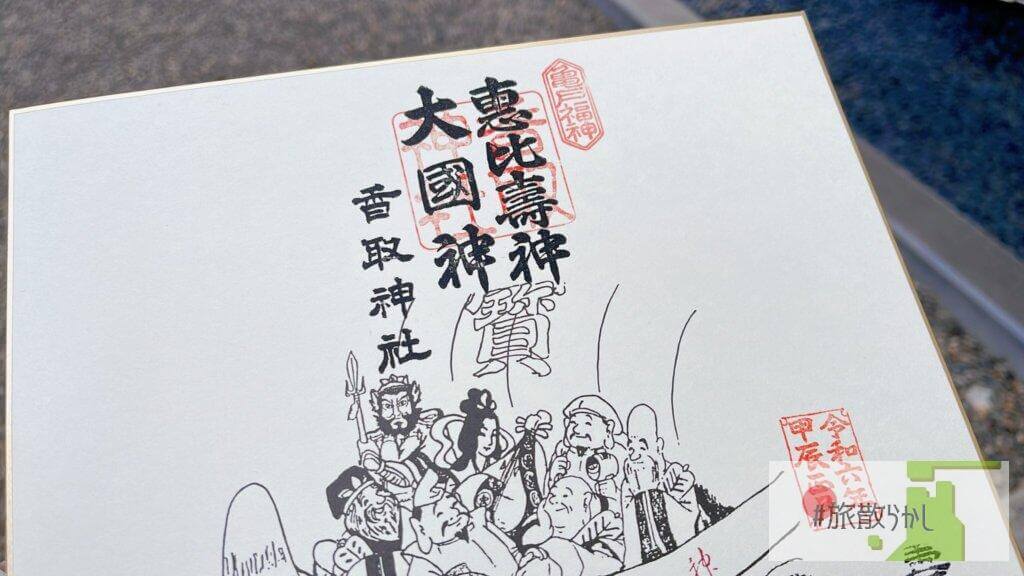 亀戸福神
惠比壽神
大國神
香取神社
寳
令和六年
甲辰元
神
#旅散らかし